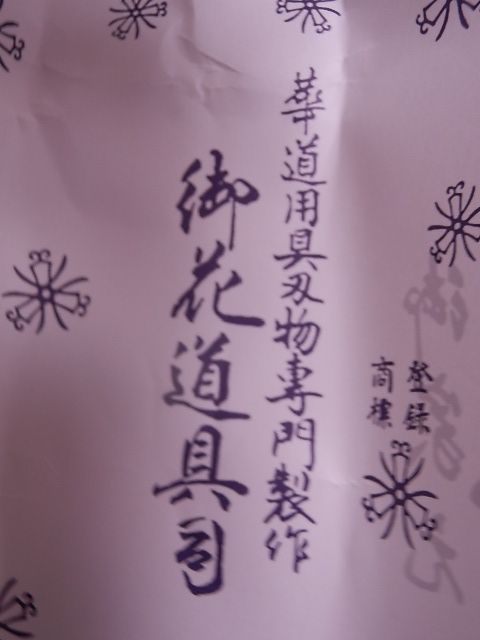 登録
商標
華道用具刃物専門製作
御花道具司